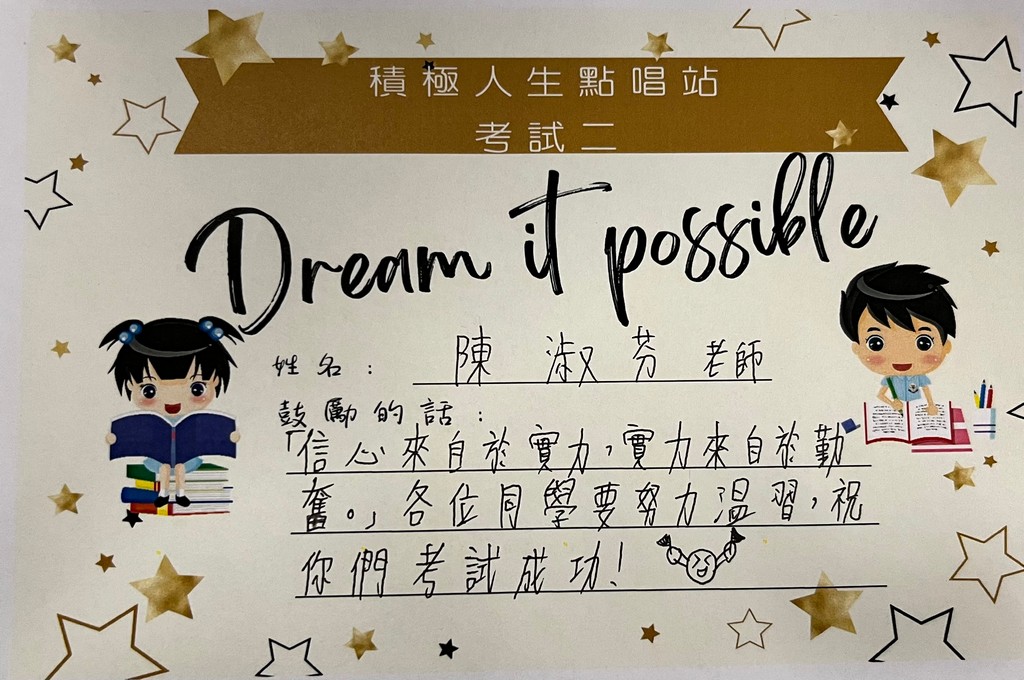 積極人生點唱站
考試二
Dream it possible
姓名：陳淑芬老師
鼓勵的話：
「信心來自於實力，實力來自於勤
奮。」各位同學要努力溫習，祝
你們考試成功！